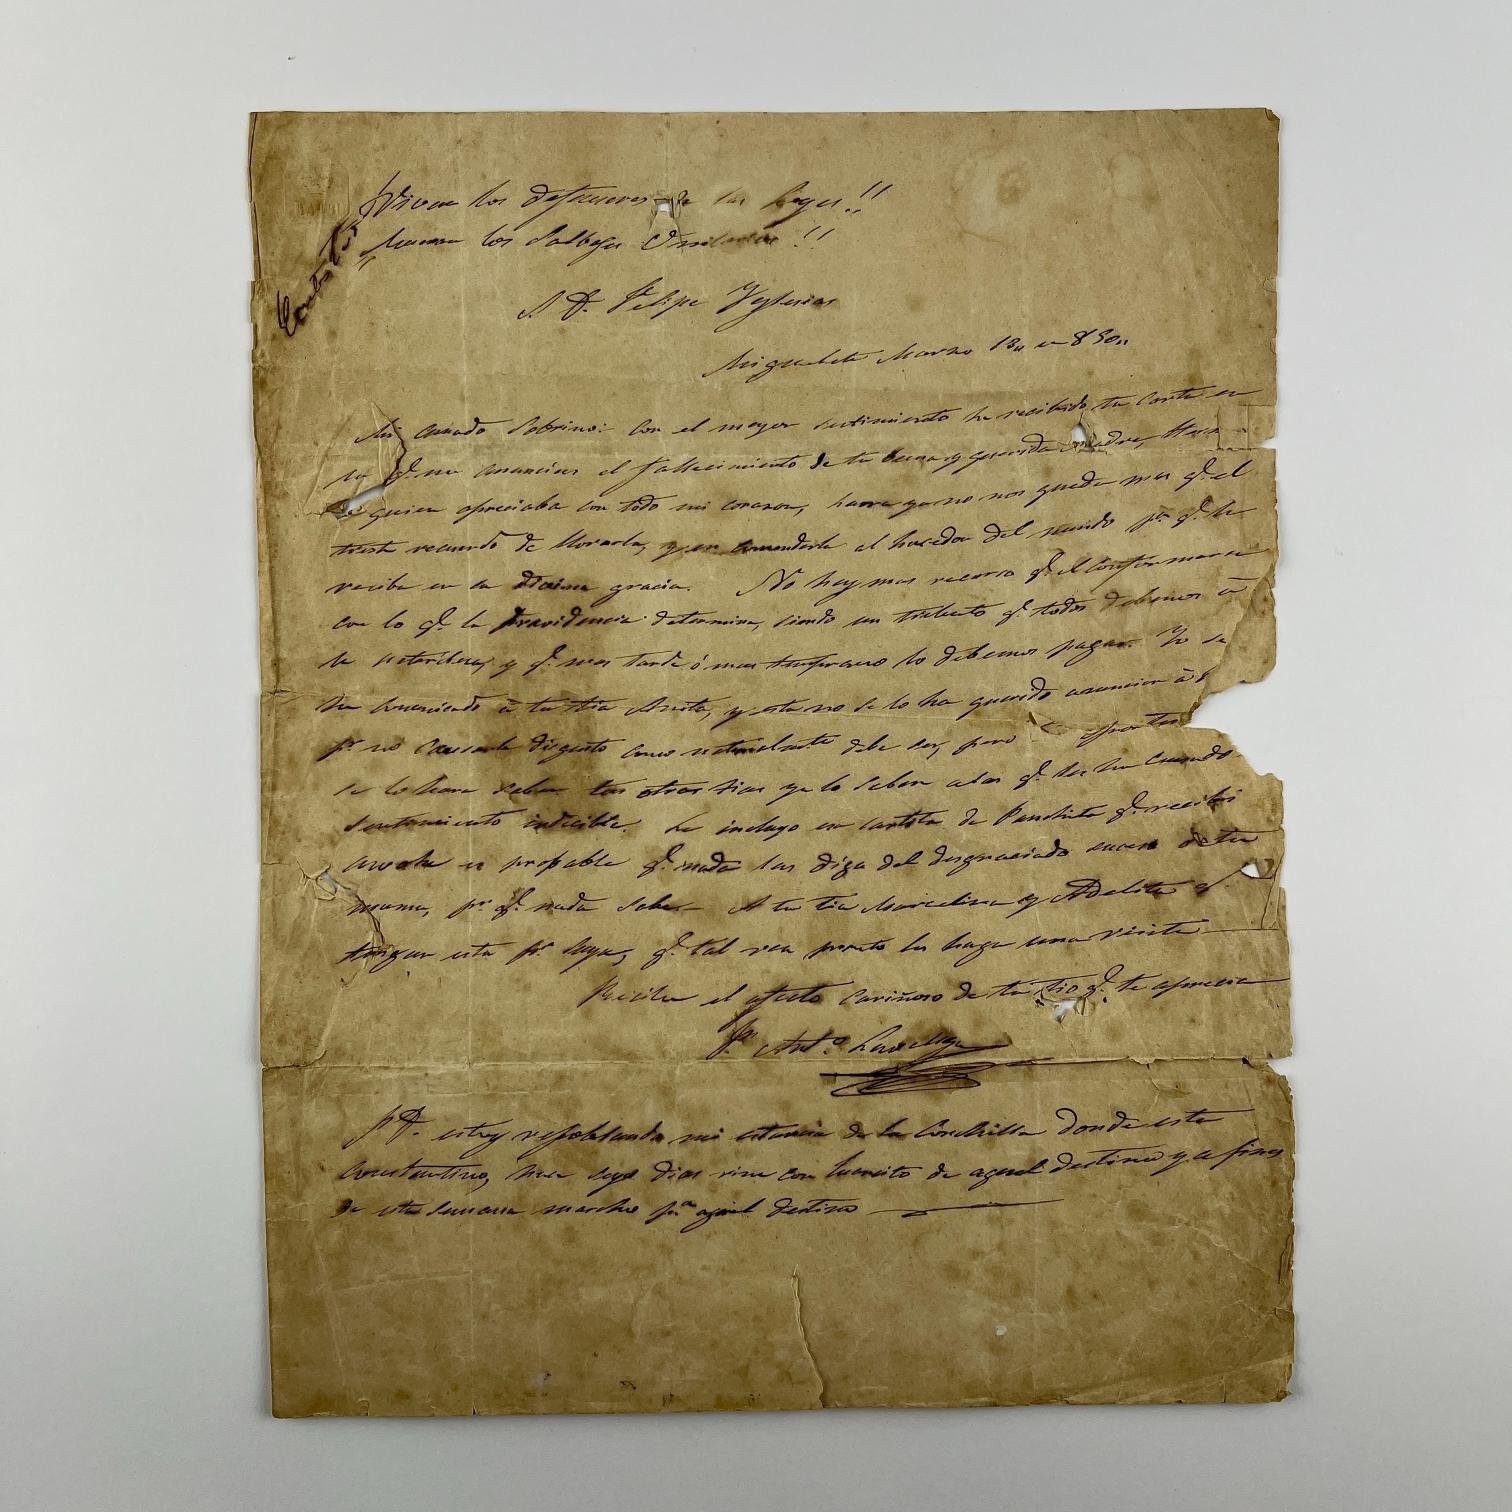 Vivan los defensores de las Leyes!!
Mueran los Salbages Unitarios!!
S. D. Felipe Yglesias
Miguelete Marzo 13 en 850
Mi amado Sobrino: con el mayor sentimiento he recibido tu Carta en
la q.e me anuncias el fallecimiento de tu buena y querida madre,
de quien apreciaba con todo mi corazon, haora ya no nos queda mas q.e el
triste recuerdo de llorarla, y encomendarla al hacedor del mundo p.a q.e la
reciba en su divina gracia. No hay mas recurso q.e el Conformarse
con lo q.e la providencia determina, siendo un tributo q.e todos debemos á
la naturaleza, y q.e mas tarde ó mas temprano lo debemos pagar. Yo se
he comunicado á tu tia Anita, y esta no se lo ha querido anunciar á
p.r no causarle disgusto como naturalmente debe ser, pero
se lo hara saber tus otras tias ya lo saben a las q.e les ha causado
sentimiento indecible. Te incluyo una cartita de Panchita q.e recibi
anoche es probable q.e nada les diga del desgraciado suceso de tu
mama, p.r q.e nada sabe. A tu tia Marcelina y Adelita q.e
tengan esta p.r suya, q.e tal vez pronto les haga una visita
Recibe el afecto cariñoso de tu tio q.e te aprecia
J.n Ant.o
P.D. estoy repoblando mi estancia de la Conchilla donde esta
Constantino, hace seys dias vine con Juancito de aquel destino y a fines
de esta semana marcho p.a aquel destino